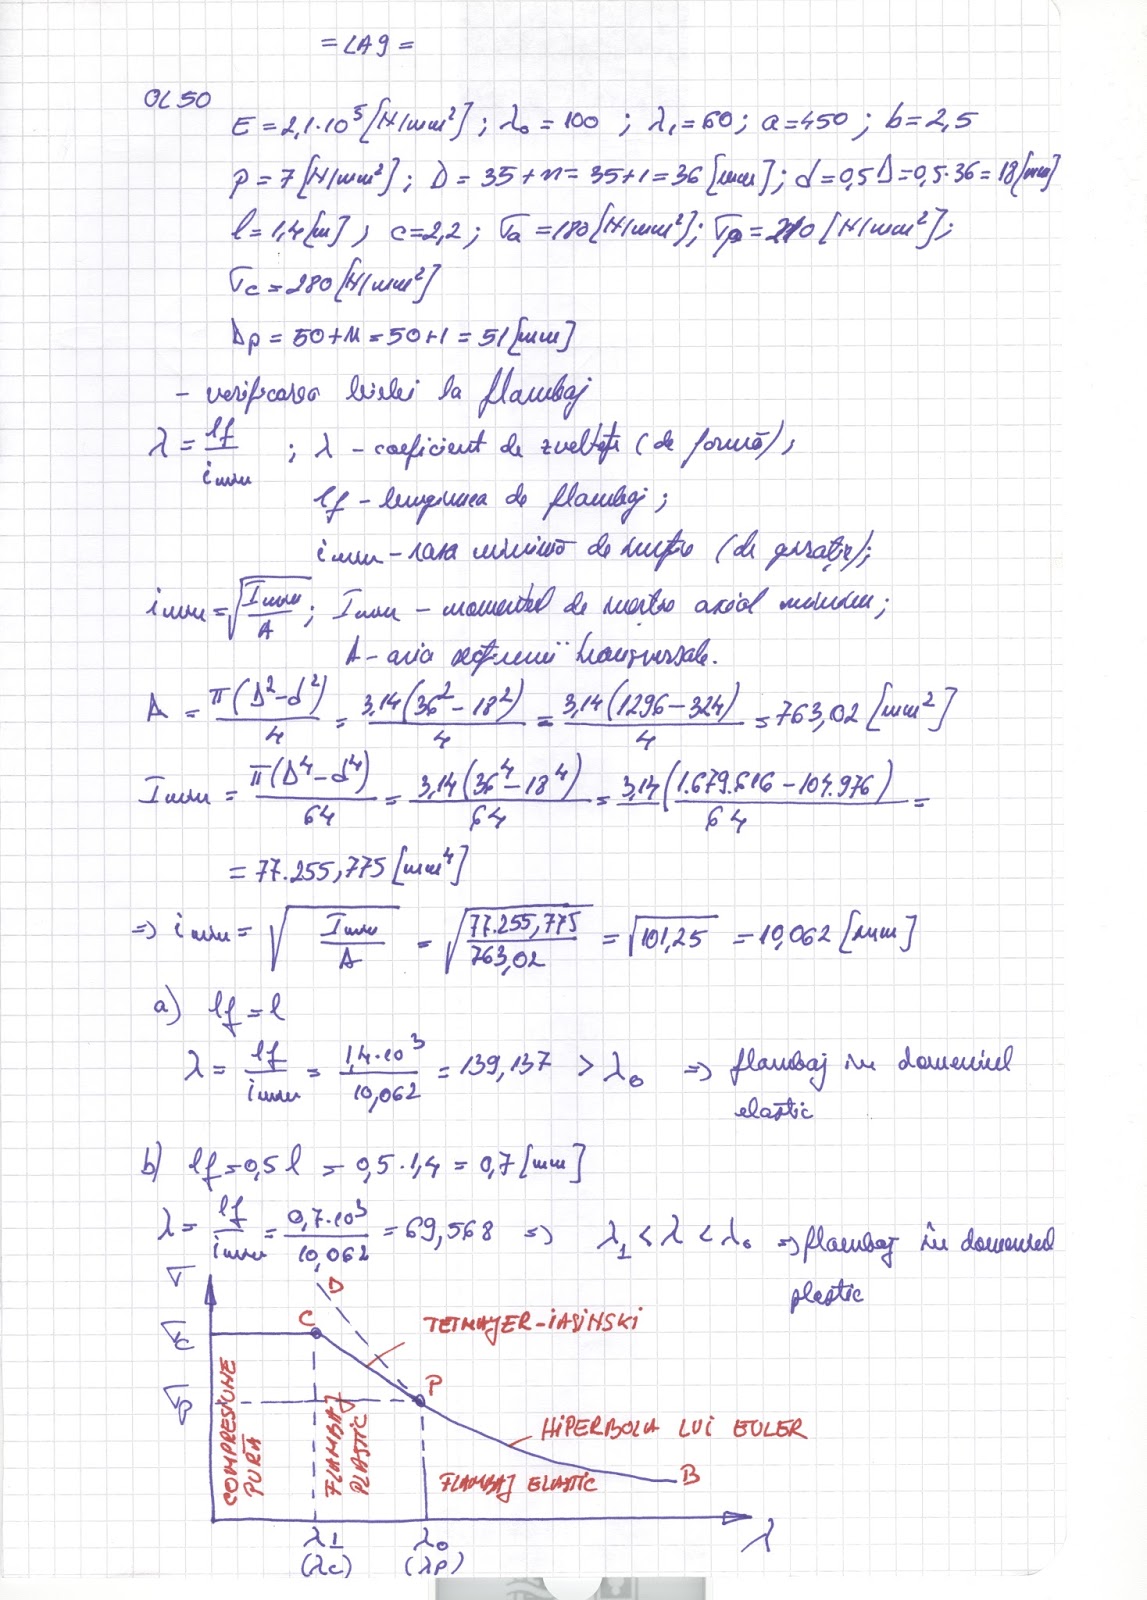 = LA9 =
OL50
E = 2,1·10⁵ [N/mm²] ; λ₀ = 100 ; λ₁ = 60 ; a = 450 ; b = 2,5
P = 7 [N/mm²] ; D = 35 + n = 35 + 1 = 36 [mm] ; d = 0,5 D = 0,5·36 = 18 [mm]
l = 1,4 [m] ; c = 2,2 ; σa = 180 [N/mm²] ; σp = 210 [N/mm²] ;
σc = 280 [N/mm²]
Dp = 50 + n = 50 + 1 = 51 [mm]
- verificarea bielei la flambaj
λ = lf / imin ; λ - coeficient de zveltețe (de formă) ;
lf - lungimea de flambaj ;
imin - raza minimă de inerție (de girație) ;
imin = √(Imin / A) ; Imin - momentul de inerție axial minim ;
A - aria secțiunii transversale.
A = π(D² - d²) / 4 = 3,14(36² - 18²) / 4 = 3,14(1296 - 324) / 4 = 763,02 [mm²]
Imin = π(D⁴ - d⁴) / 64 = 3,14(36⁴ - 18⁴) / 64 = 3,14(1.679.616 - 104.976) / 64 =
= 77.255,775 [mm⁴]
=> imin = √(Imin / A) = √(77.255,775 / 763,02) = √101,25 = 10,062 [mm]
a) lf = l
λ = lf / imin = 1,4·10³ / 10,062 = 139,137 > λ₀ => flambaj în domeniul
elastic
b) lf = 0,5 l = 0,5·1,4 = 0,7 [mm]
λ = lf / imin = 0,7·10³ / 10,062 = 69,568 => λ₁ < λ < λ₀ => flambaj în domeniul
plastic
σ
D
C
TETMAJER-IASINSKI
σc
P
σp
COMPRESIUNE
PURĂ
FLAMBAJ
PLASTIC
HIPERBOLA LUI EULER
FLAMBAJ ELASTIC
B
λ₁
λ₀
λ
(λc)
(λp)